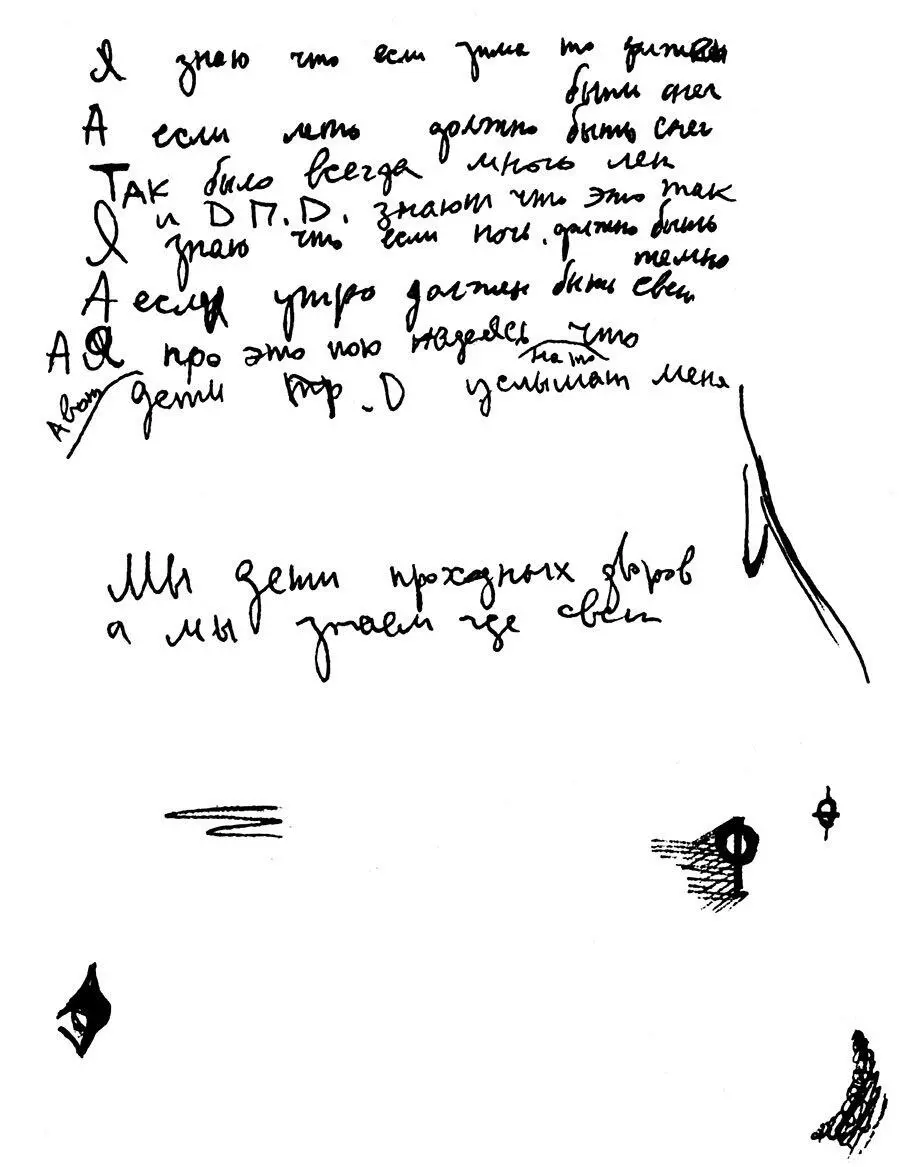 Я знаю что если зима то должен
быть снег
А если лето должно быть снег
Так было всегда много лет
и D П.D. знают что это так
Я знаю что если ночь, должно быть
темно
А если утро должен быть свет
А Я про это пою надеясь что
на то
А вот дети пр.D услышат меня
Мы дети проходных дворов
а мы знаем где свет